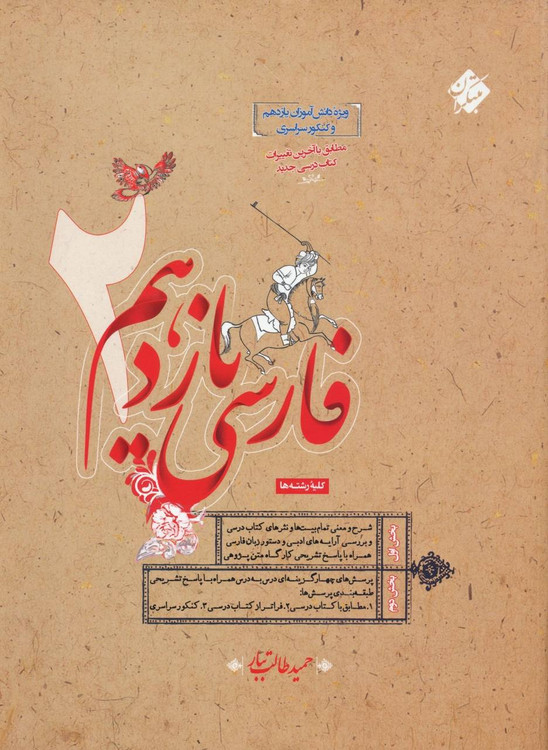 مبتکران
ویژه دانش‌آموزان یازدهم
و کنکور سراسری
مطابق با آخرین تغییرات
کتاب درسی جدید
۲
فارسی یازدهم
کلیهٔ رشته‌ها
بخش اول
شرح و معنی تمام بیت‌ها و نثرهای کتاب درسی
و بررسی آرایه‌های ادبی و دستور زبان فارسی
همراه با پاسخ تشریحی کارگاه متن پژوهی
بخش دوم
پرسش‌های چهارگزینه‌ای درس به درس همراه با پاسخ تشریحی
طبقه‌بندی پرسش‌ها:
۱. مطابق با کتاب درسی ۲. فراتر از کتاب درسی ۳. کنکور سراسری
حمید طالب تبار